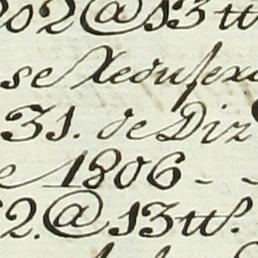 202 @ 13 tt
se Reduxera
31. de Diz
e 1806 - -
62. @ 13 tt.